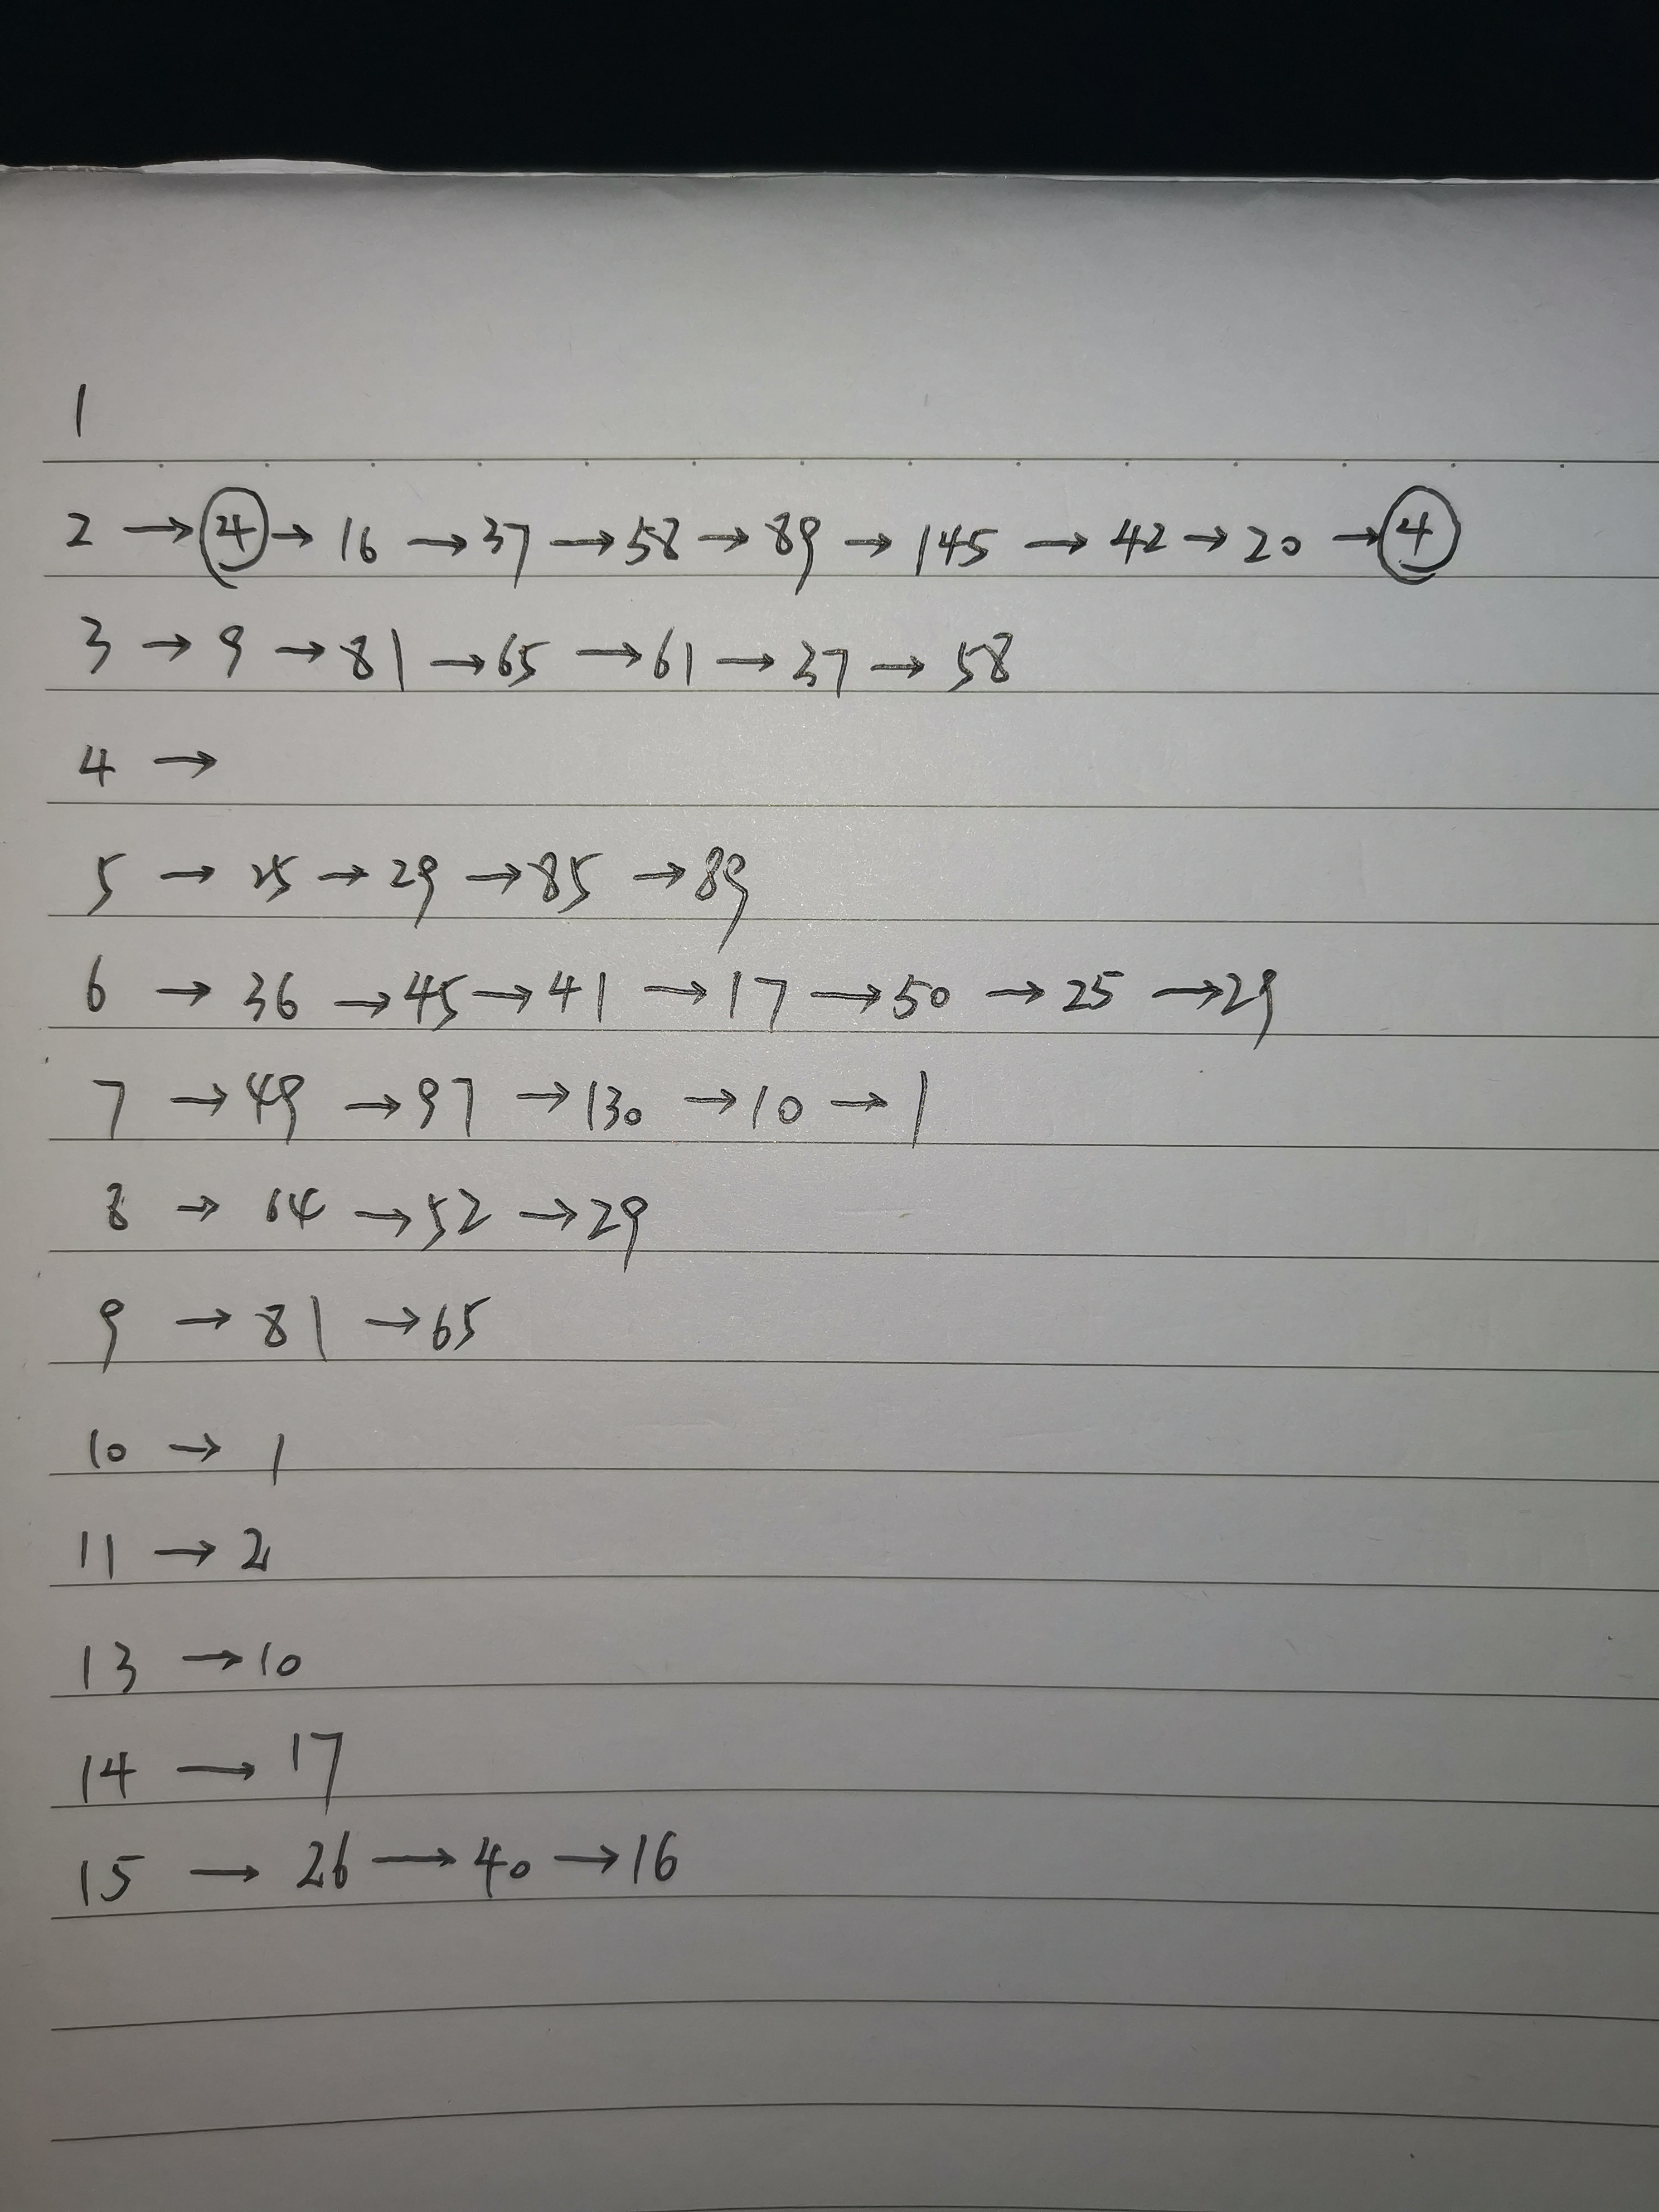 1
2 → 4 → 16 → 37 → 58 → 89 → 145 → 42 → 20 → 4
3 → 9 → 81 → 65 → 61 → 37 → 58
4 →
5 → 25 → 29 → 85 → 89
6 → 36 → 45 → 41 → 17 → 50 → 25 → 29
7 → 49 → 97 → 130 → 10 → 1
8 → 64 → 52 → 29
9 → 81 → 65
10 → 1
11 → 2
13 → 10
14 → 17
15 → 26 → 40 → 16